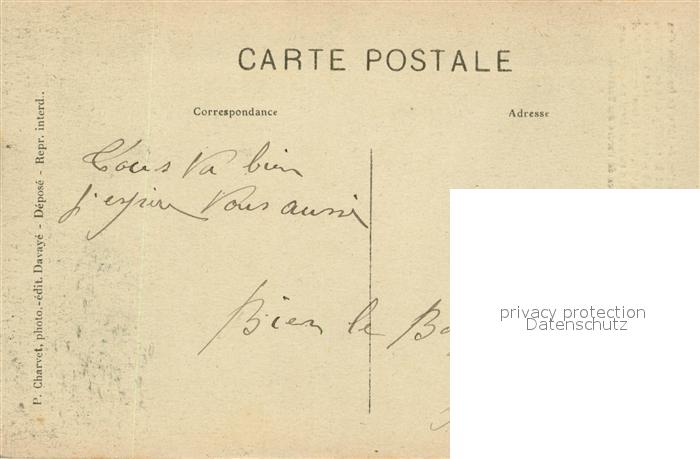 CARTE POSTALE
Correspondance
Adresse
Tous va bien
j'espère Vous aussi
Bien le
privacy protection
Datenschutz
P. Charvet, photo.-édit. Davayé - Déposé - Repr. interd..